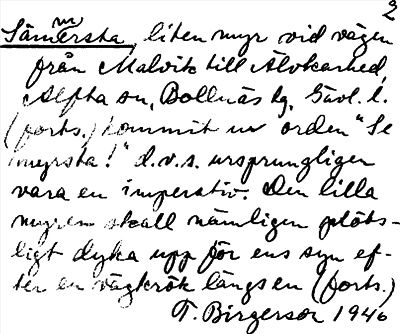 2
Sämmersta, liten myr vid vägen
från Malvik till Älvkarhed,
Alfta sn, Bollnäs tg, Gävl. l.
(forts.) kommit ur orden "Se
myrsta!" d.v.s. ursprungligen
vara en imperativ. Den lilla
myren skall nämligen plöts-
ligt dyka upp för ens syn ef-
ter en vägkrök längs en (forts.)
T. Birgerson 1946